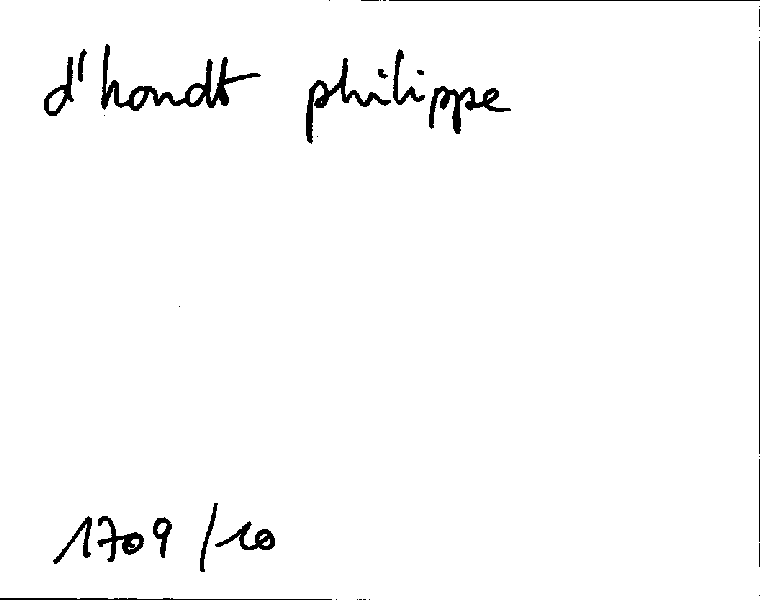 d'hondt philippe
1709/10